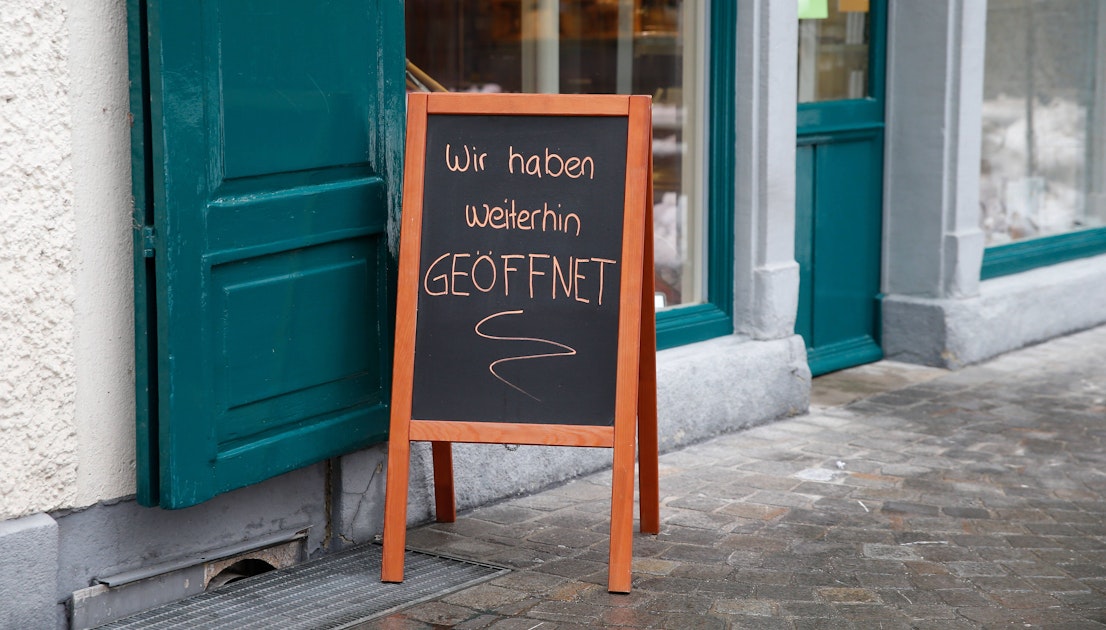 Wir haben
weiterhin
GEÖFFNET